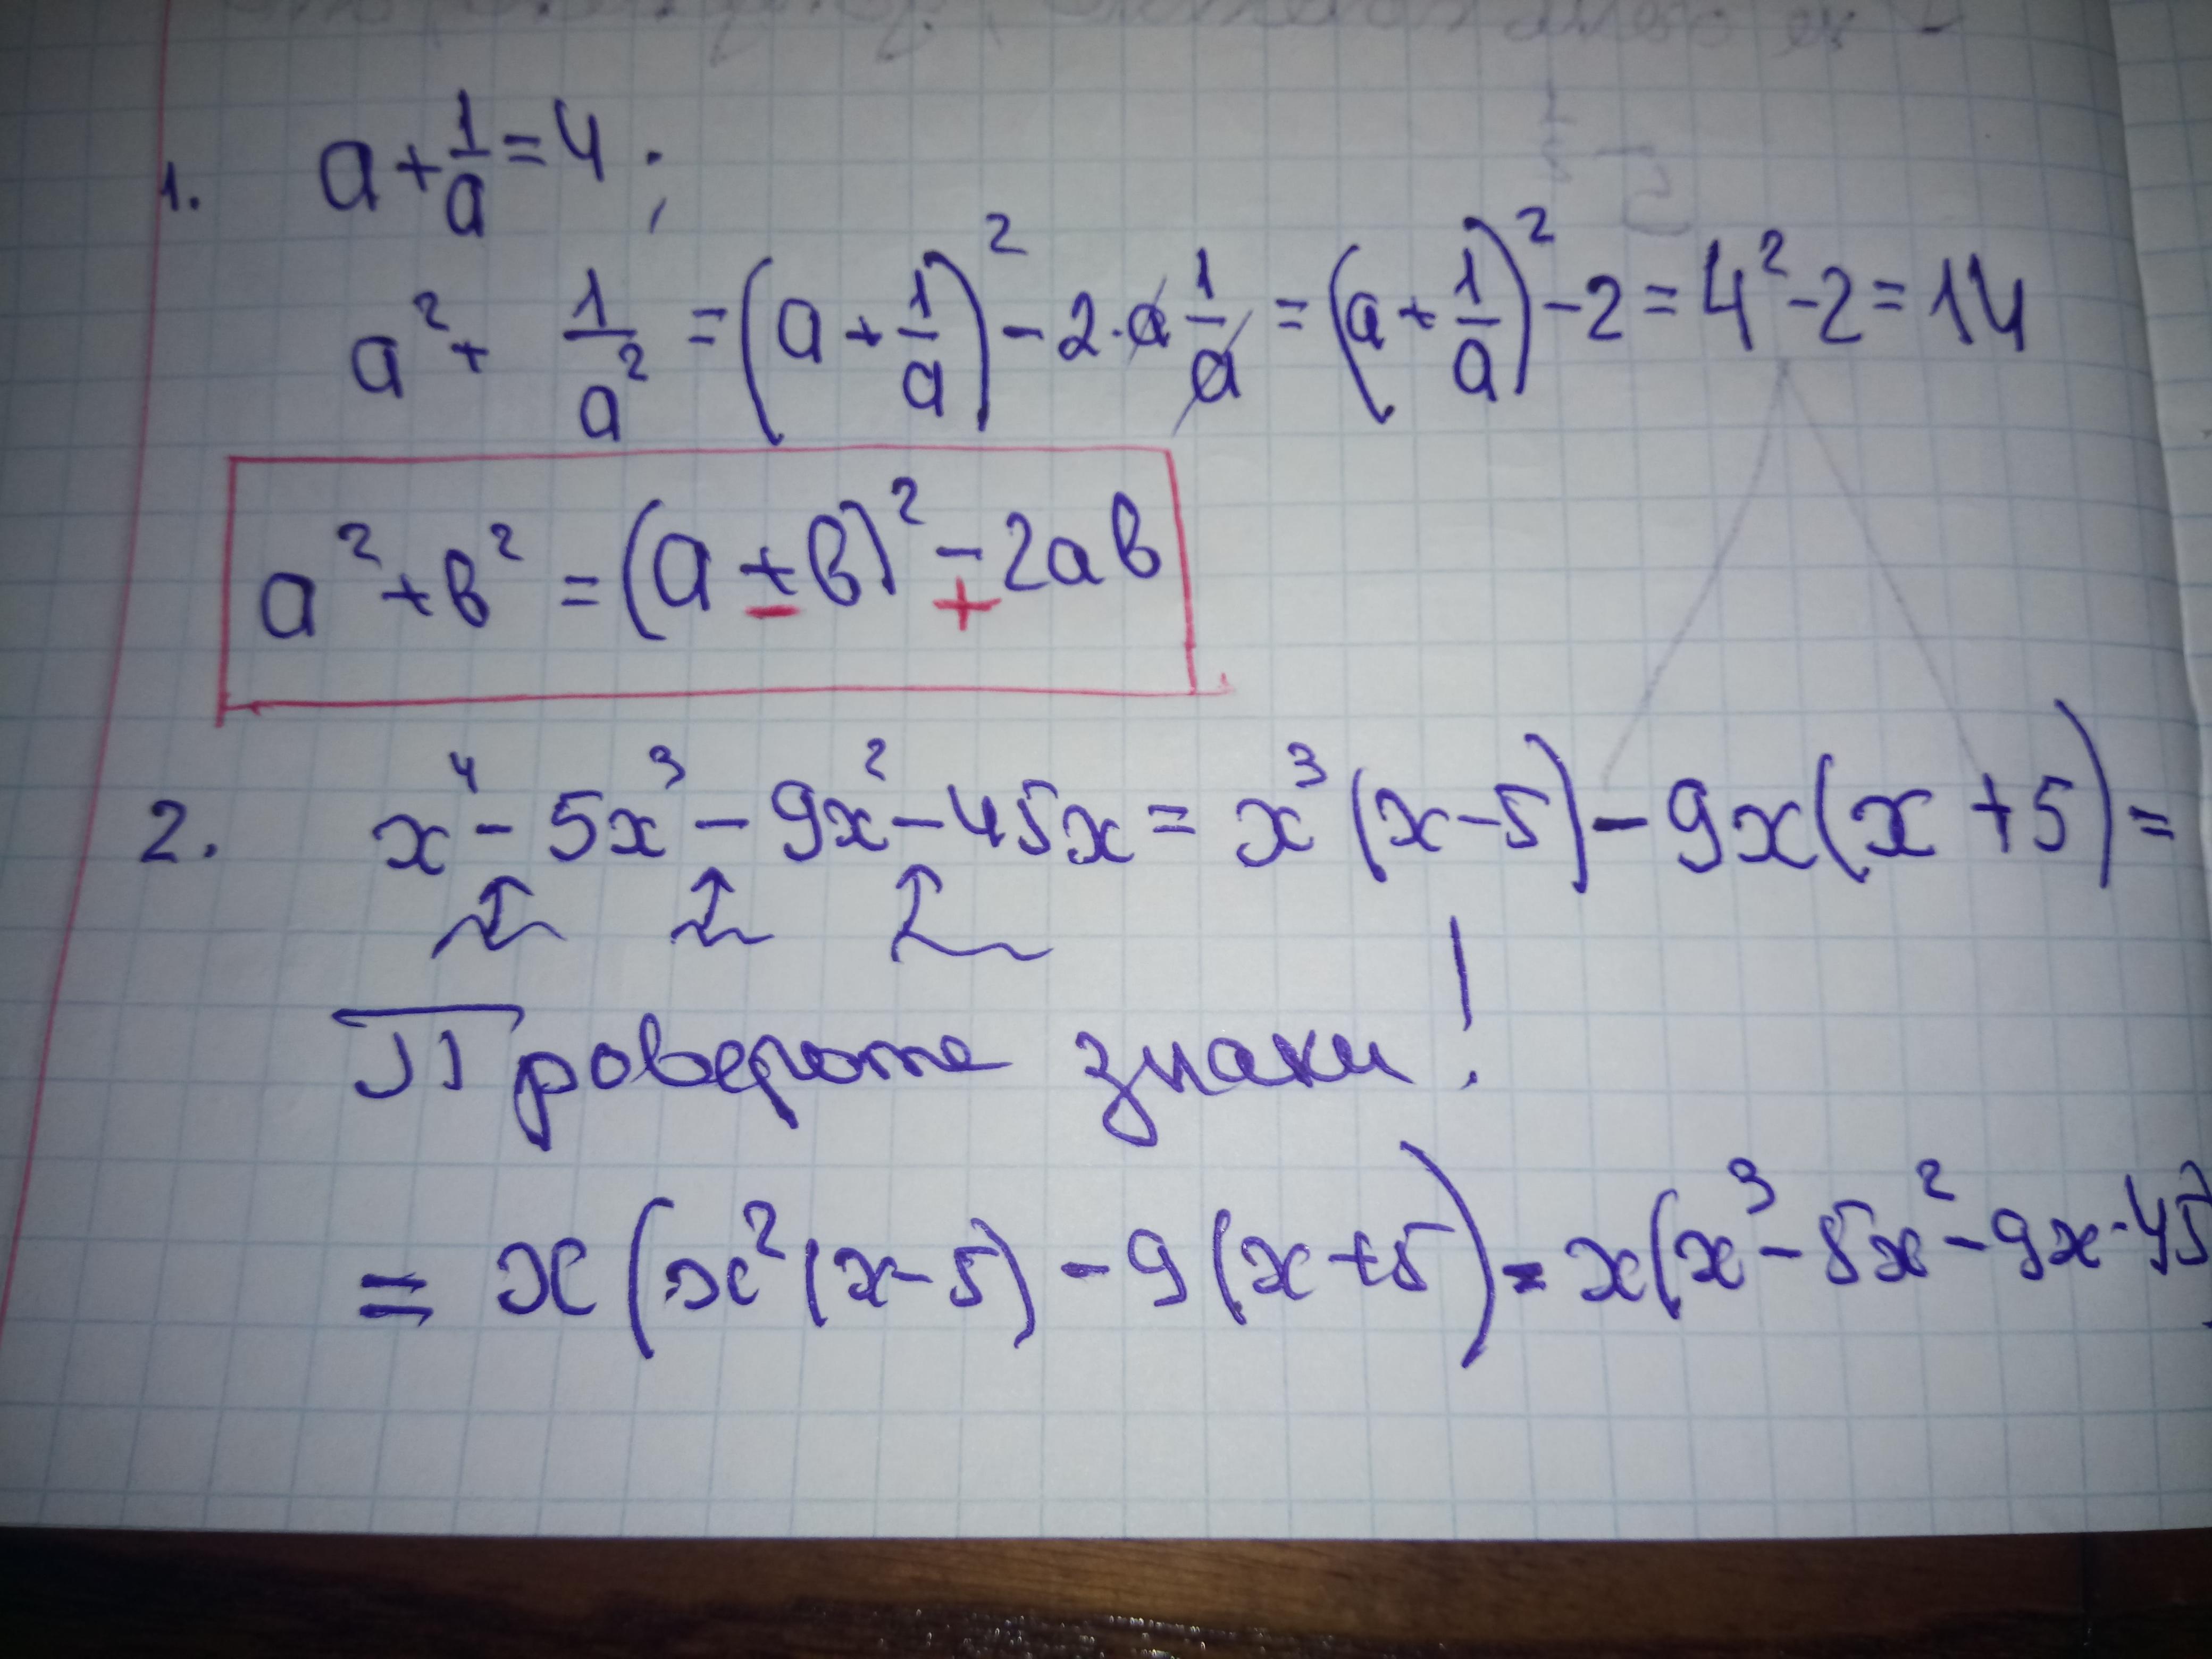 1. a + 1/a = 4;
a² + 1/a² = (a + 1/a)² - 2·a 1/a = (a + 1/a)² - 2 = 4² - 2 = 14
a² + в² = (a ± в)² ∓ 2ав
2. x⁴ - 5x³ - 9x² - 45x = x³(x-5) - 9x(x+5) =
Проверьте знаки!
= x(x²(x-5) - 9(x+5)) = x(x³ - 5x² - 9x - 45)